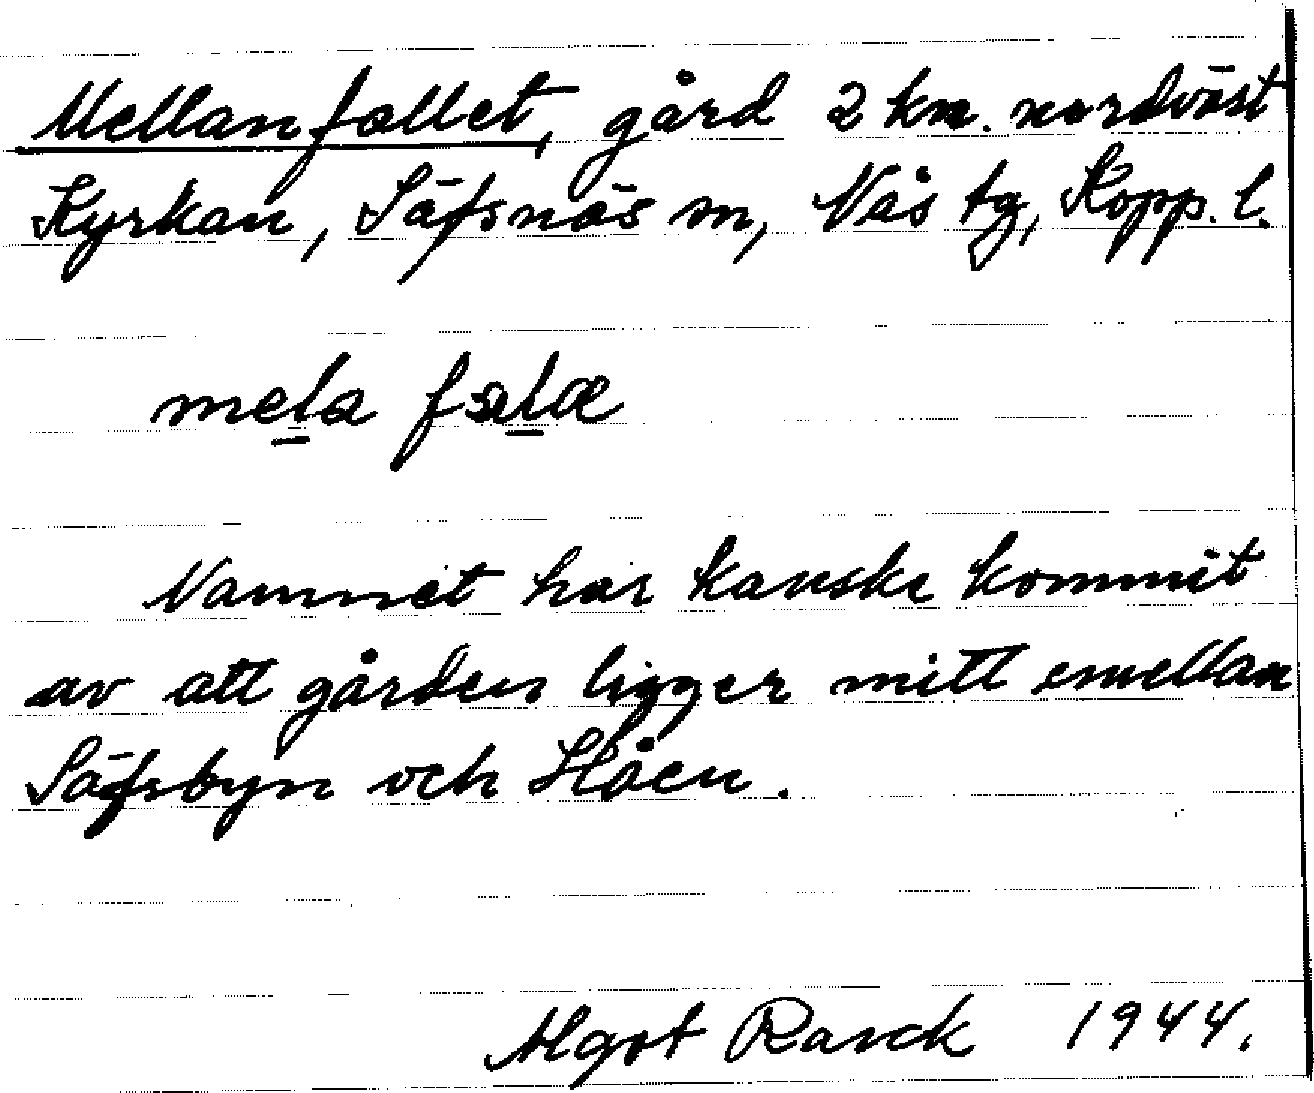 Mellanfallet, gård 2 km. nordväst
Kyrkan, Säfsnäs sn, Nås tg, Kopp. l.
mela falæ
Namnet har kanske kommit
av att gården ligger mitt emellan
Säfsbyn och Håen.
Algot Rask 1944.